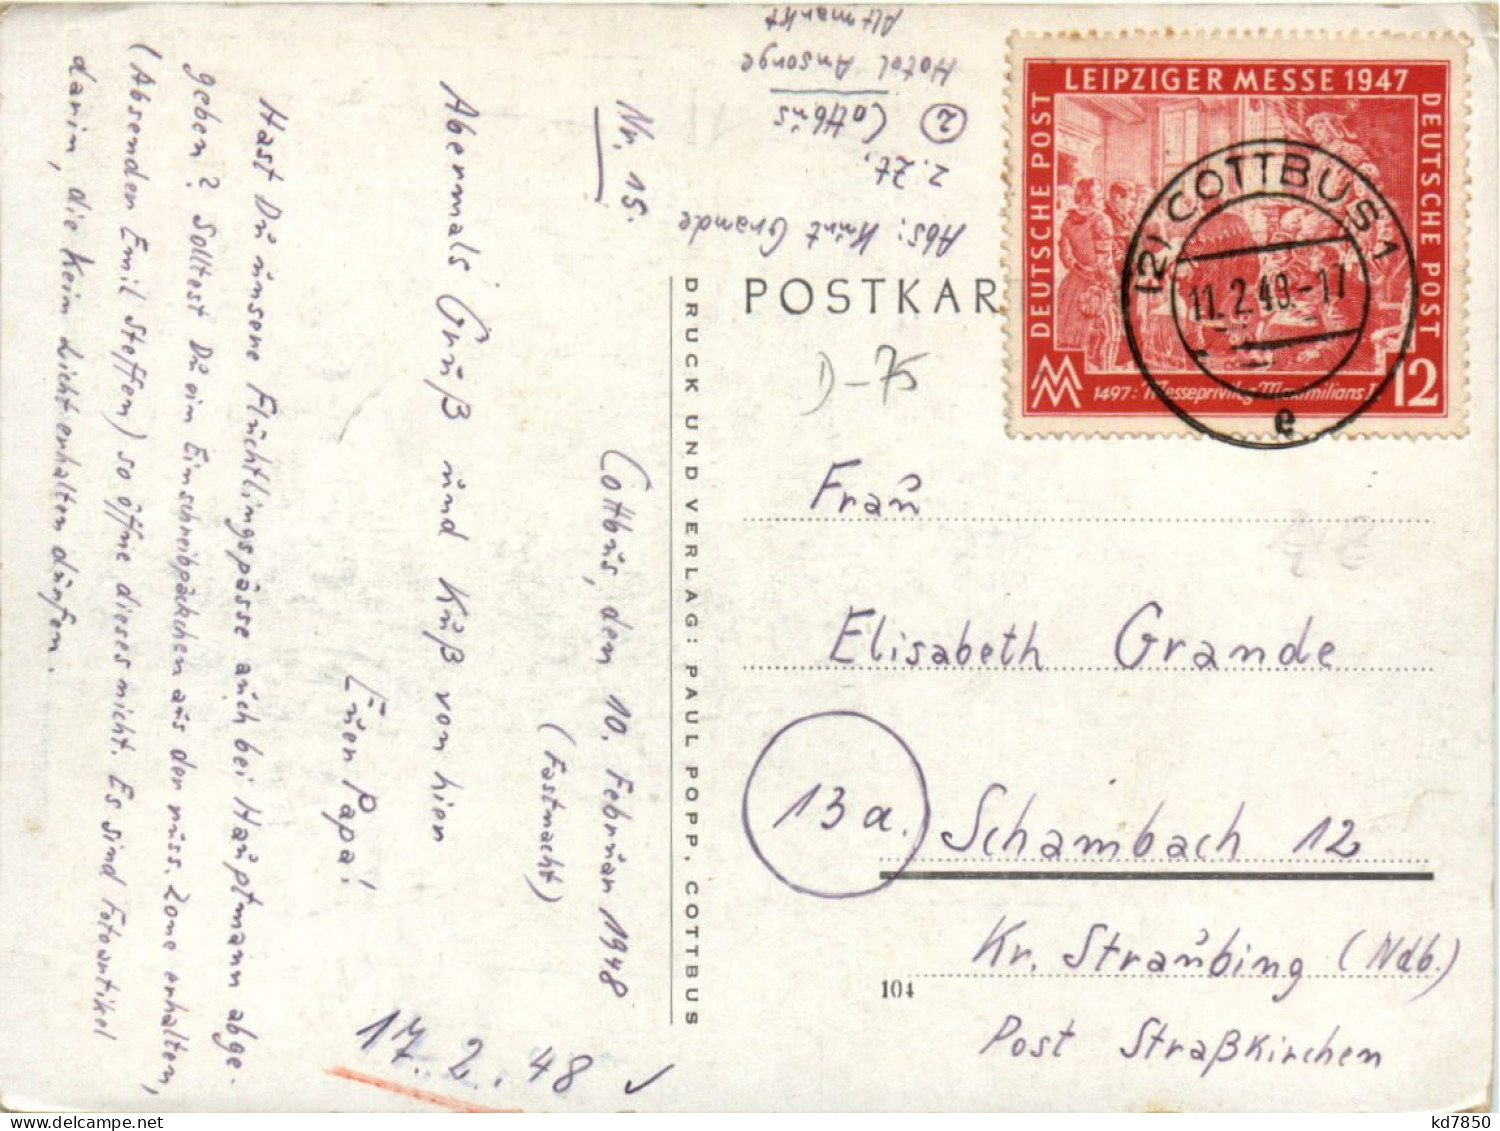 Nr. 15.
Cottbus, den 10. Februar 1948
(Fastnacht)
Abermals Gruß und Kuß von hier
Euer Papa!
Hast Du unsere Flüchtlingspässe auch bei Hauptmann abge-
geben? Solltest Du ein Einschreibpäckchen aus der russ. Zone erhalten,
(Absender Emil Steffen) so öffne dieses nicht. Es sind Fotoartikel
darin, die kein Licht erhalten dürfen.
17.2.48
Abs: Kurt Grande
z. Zt.
(2) Cottbus
Hotel Ansorge
Altmarkt
DRUCK UND VERLAG: PAUL POPP, COTTBUS
POSTKAR
D-75
LEIPZIGER MESSE 1947
DEUTSCHE POST
DEUTSCHE POST
1497: Messeprivileg Maximilians I
12
(2) COTTBUS 1
11.2.48.-17
e
Frau
Elisabeth Grande
13a. Schambach 12
Kr. Straubing (Ndb.)
104
Post Straßkirchen
kd7850